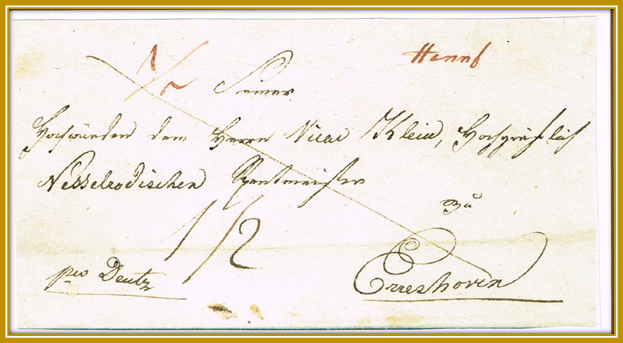 Hennef
1/2
Seiner
Hochwürden dem Herrn Vicar Klein, Hochgräflich
Nesselrodischen Rentmeister
zu
1/2
pro Deutz
Erreshoven